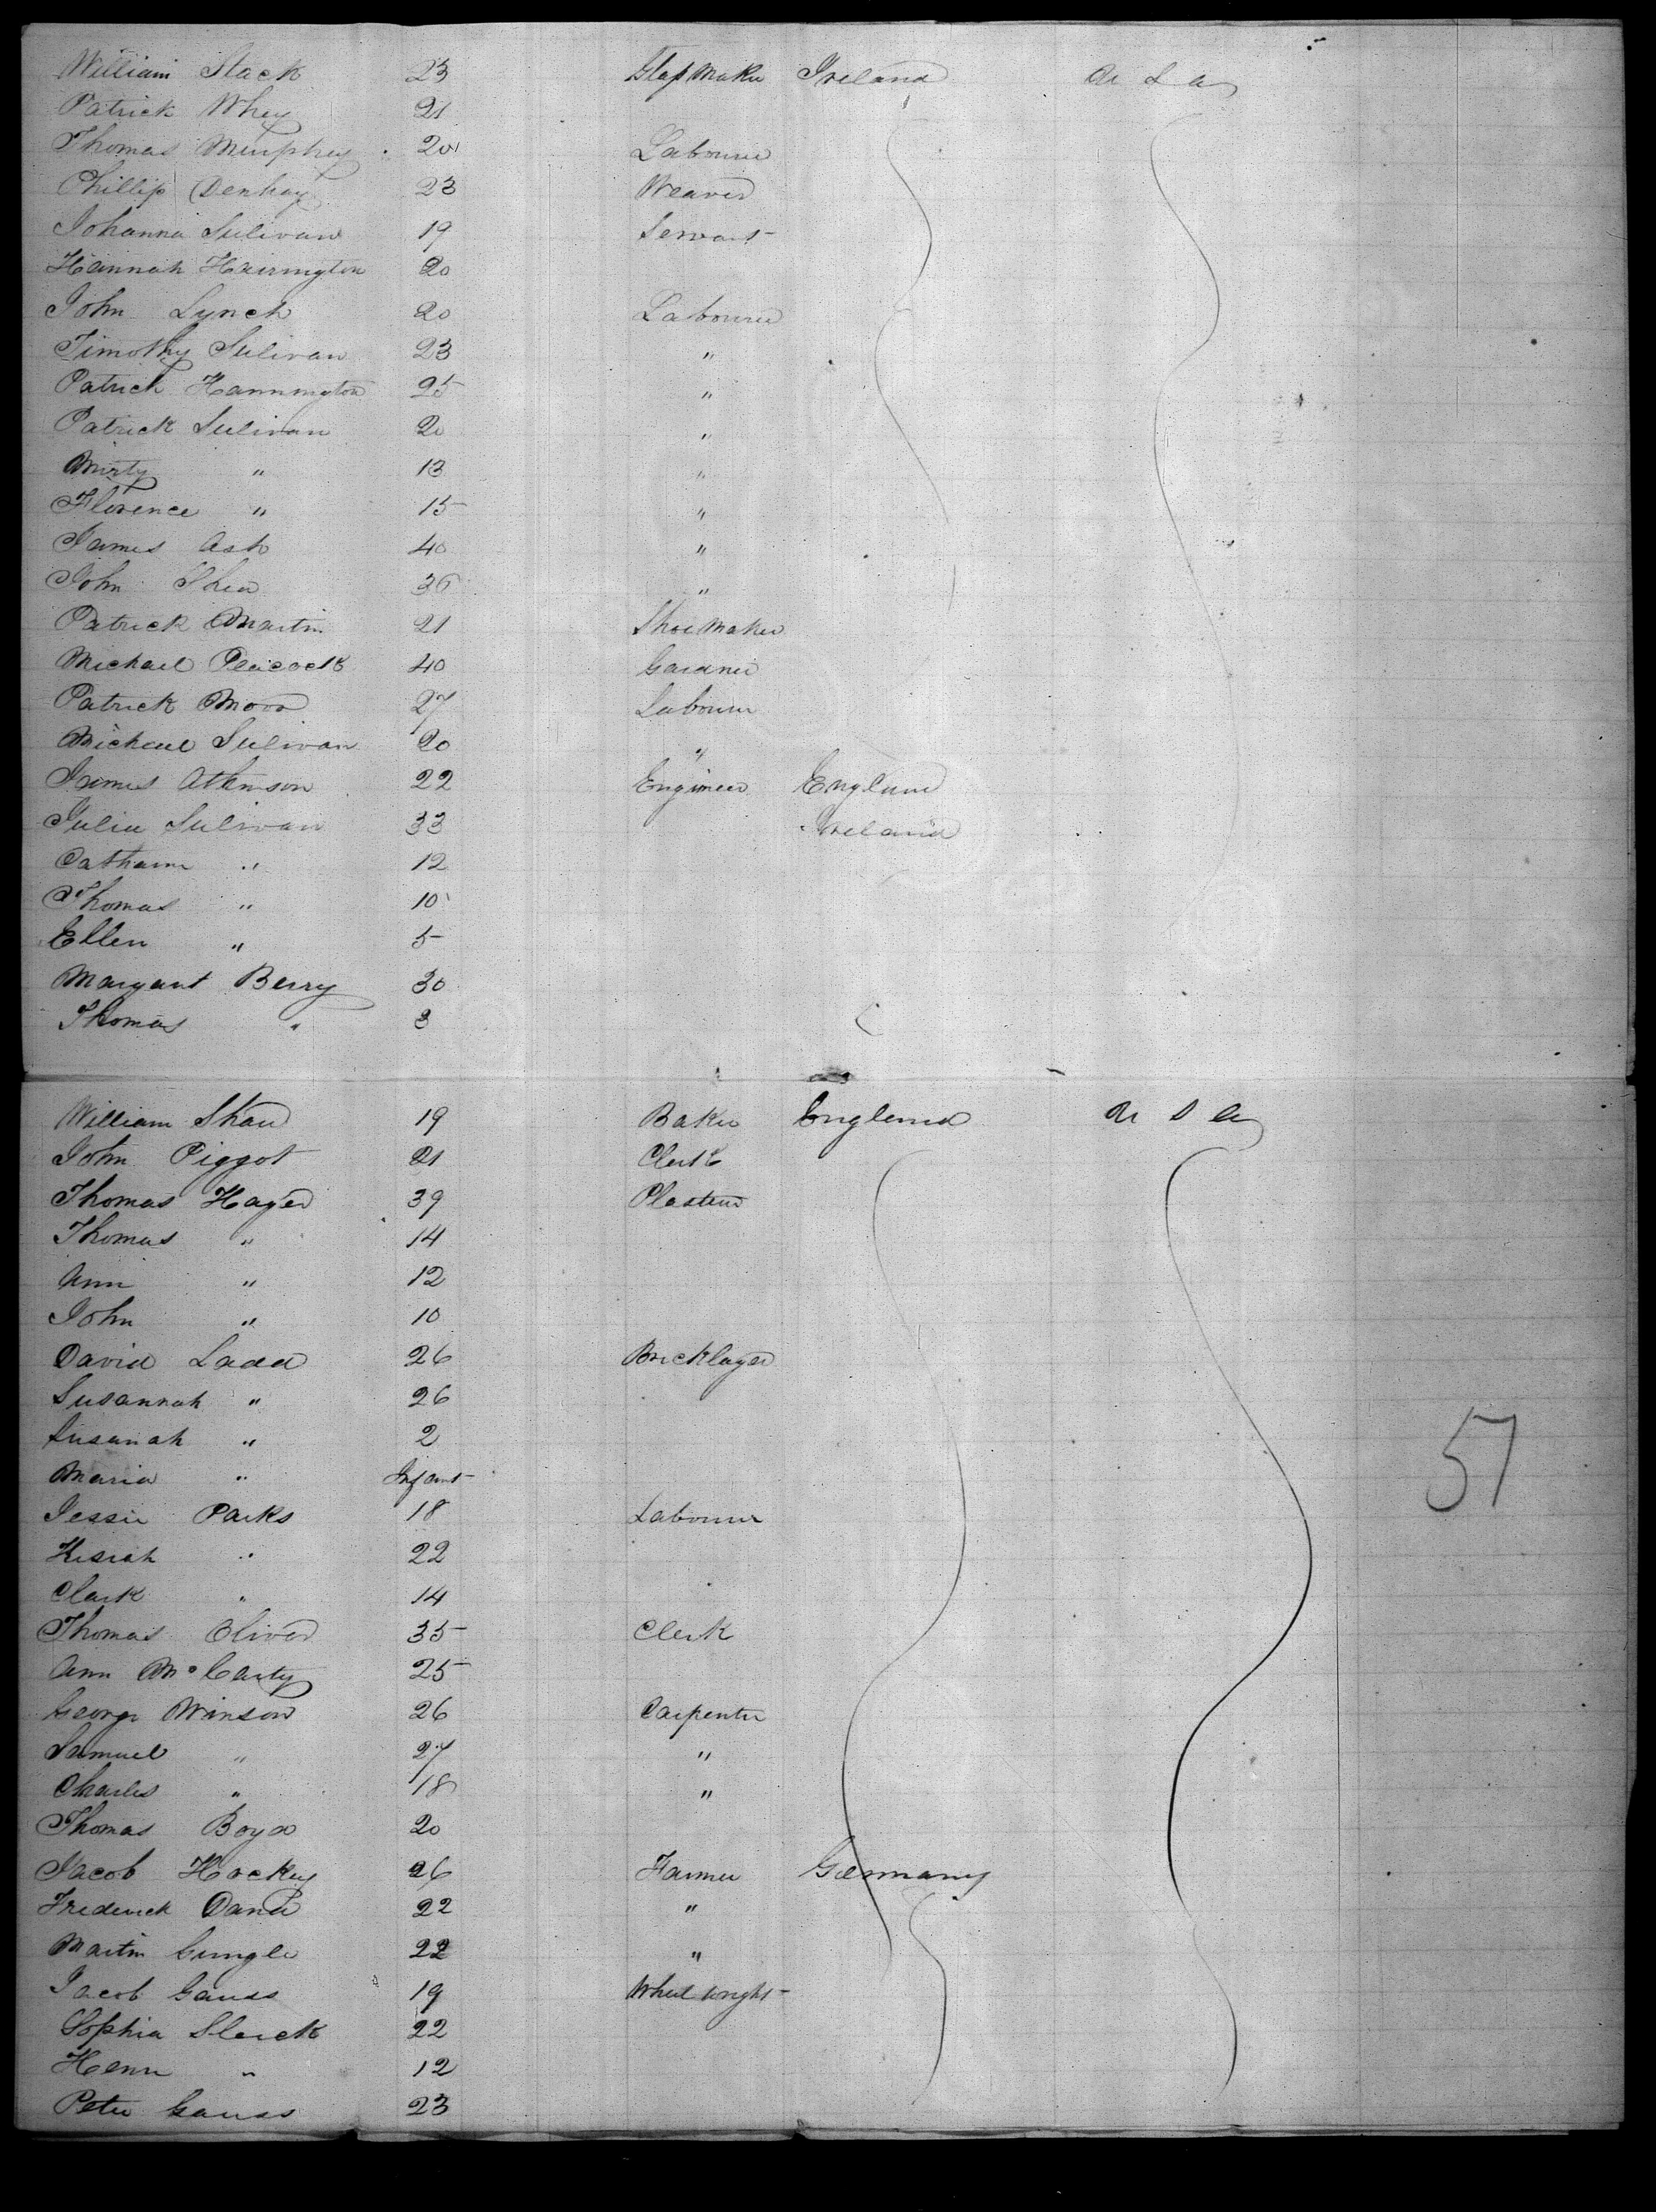 William Slack 23 Glass Maker Ireland U S A
Patrick Whey 21
Thomas Murphey 20 Labourer
Phillip Denhay 23 Weaver
Johanna Sulivan 19 Servant
Hannah Harrington 20
John Lynch 20 Labourer
Timothy Sulivan 23 "
Patrick Hannington 25 "
Patrick Sulivan 20 "
Murty " 13 "
Florence " 15 "
James Ash 40 "
John Shea 36 "
Patrick Martin 21 Shoe Maker
Michael Peacock 40 Gardner
Patrick Moor 27 Labourer
Michael Sulivan 20 "
James Atkinson 22 Engineer England
Julia Sulivan 33 Ireland
Catharine " 12
Thomas " 10
Ellen " 5
Margaret Berry 30
Thomas " 3
William Shaw 19 Baker England U S A
John Piggot 21 Clerk
Thomas Hayer 39 Plasterer
Thomas " 14
Ann " 12
John " 10
David Ladd 26 Bricklayer
Susannah " 26
Susanah " 2
Maria " Infant
Jessie Parks 18 Labourer
Kesiah " 22
Clark " 14
Thomas Oliver 35 Clerk
Ann McCarty 25
George Winsor 26 Carpenter
Samuel " 27 "
Charles " 18 "
Thomas 20
Jacob Hockey 26 Farmer Germany
Frederick 22 "
Martin Gungle 22 "
Jacob Gauss 19 Wheel wright
Sophia 22
Henn " 12
Peter Gauss 23
57